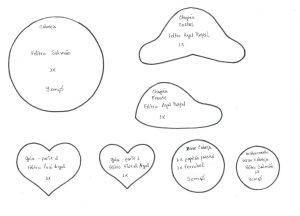 Cabeça
Feltro Salmão
2x
9cmø
Chapéu
Costas
Feltro Azul Royal
1x
Chapéu
Frente
Feltro Azul Royal
1x
Gola - parte 2
Feltro Azul
2x
Gola - parte 1
Feltro Floral Azul
2x
Base Cabeça
1x papelão paraná
1x
5cmø
Base Cabeça
Feltro Salmão
1x
5cmø